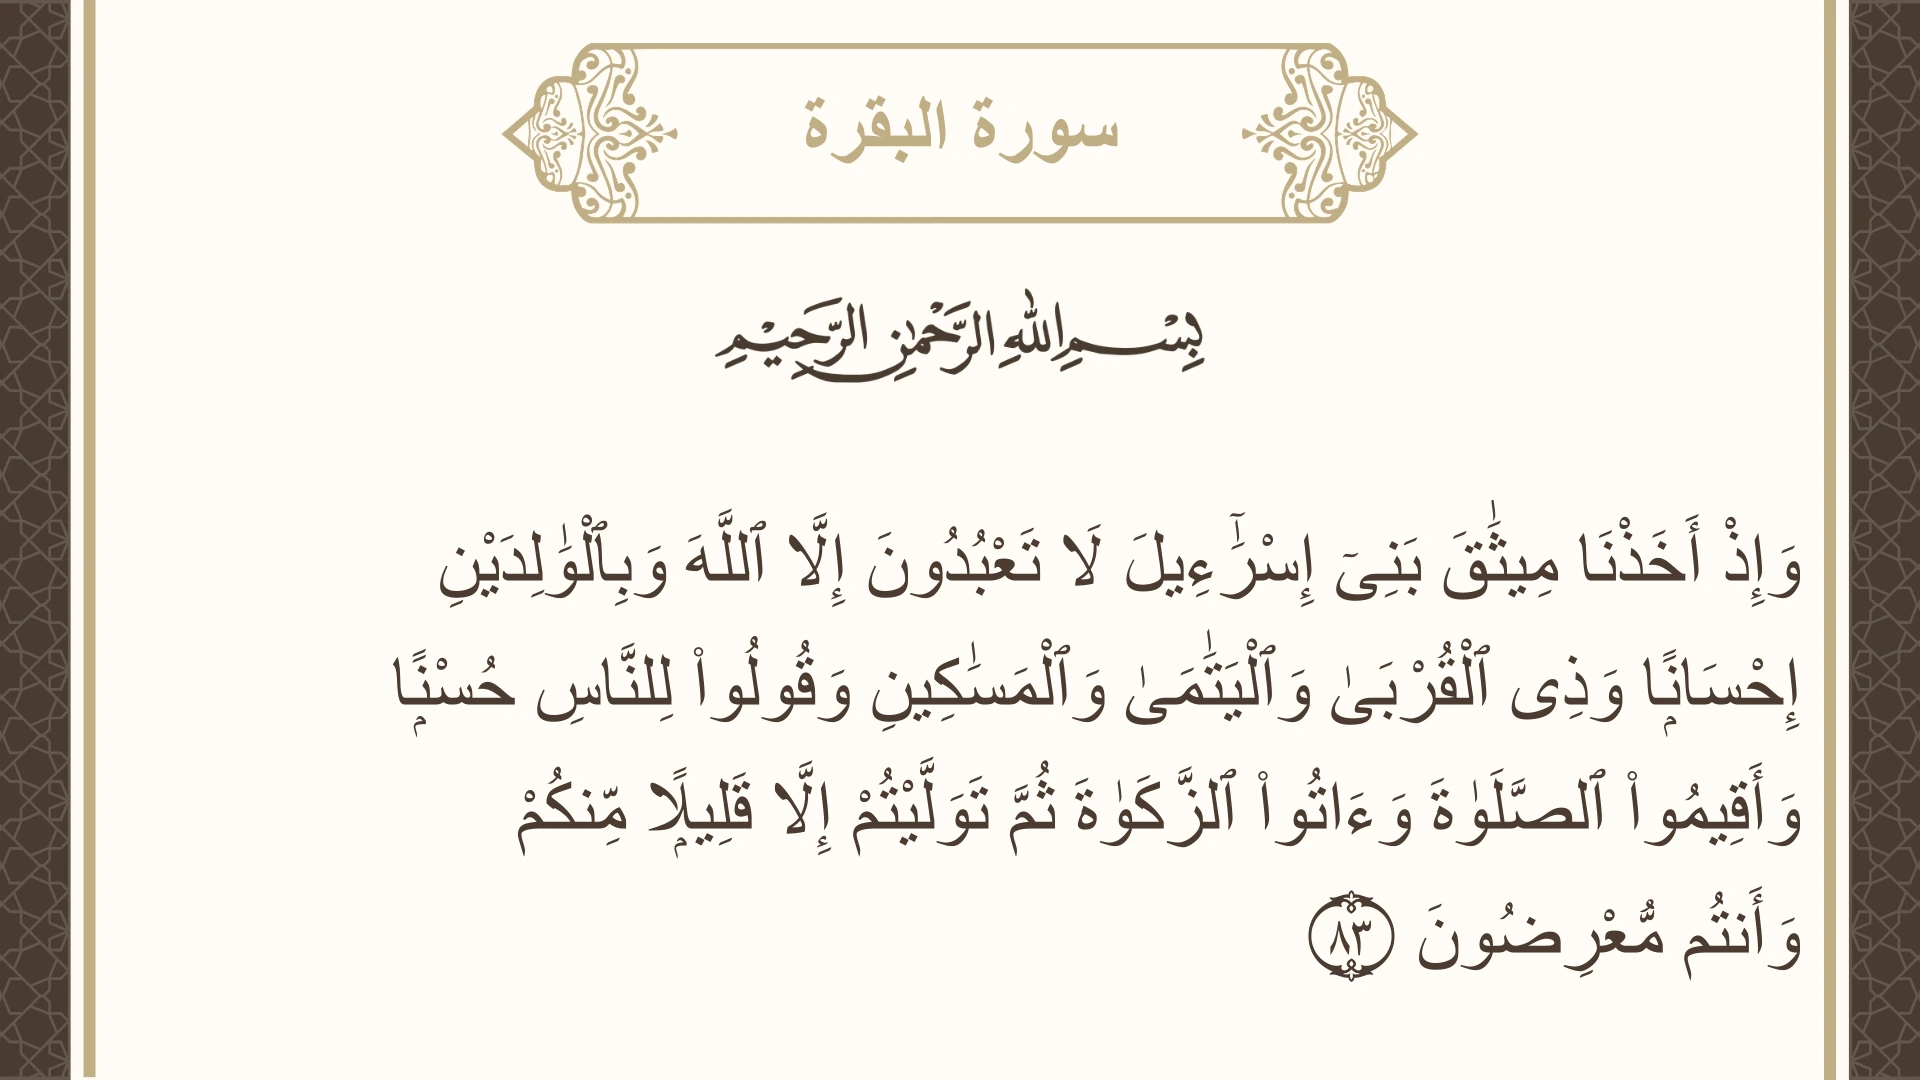 سورة البقرة
بِسْمِ اللهِ الرَّحْمٰنِ الرَّحِيْمِ
وَإِذْ أَخَذْنَا مِيثَٰقَ بَنِىٓ إِسْرَٰٓءِيلَ لَا تَعْبُدُونَ إِلَّا ٱللَّهَ وَبِٱلْوَٰلِدَيْنِ
إِحْسَانًۭا وَذِى ٱلْقُرْبَىٰ وَٱلْيَتَٰمَىٰ وَٱلْمَسَٰكِينِ وَقُولُوا۟ لِلنَّاسِ حُسْنًۭا
وَأَقِيمُوا۟ ٱلصَّلَوٰةَ وَءَاتُوا۟ ٱلزَّكَوٰةَ ثُمَّ تَوَلَّيْتُمْ إِلَّا قَلِيلًۭا مِّنكُمْ
وَأَنتُم مُّعْرِضُونَ ٨٣